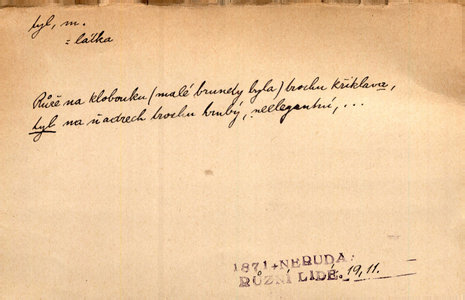 tyl, m.
= látka
Růže na klobouku (malé brunedy byla) trochu křiklavá,
tyl na ňadrech trochu hrubý, nelegantní, ...
1871 NERUDA:
RŮZNÍ LIDÉ. 19, 11.